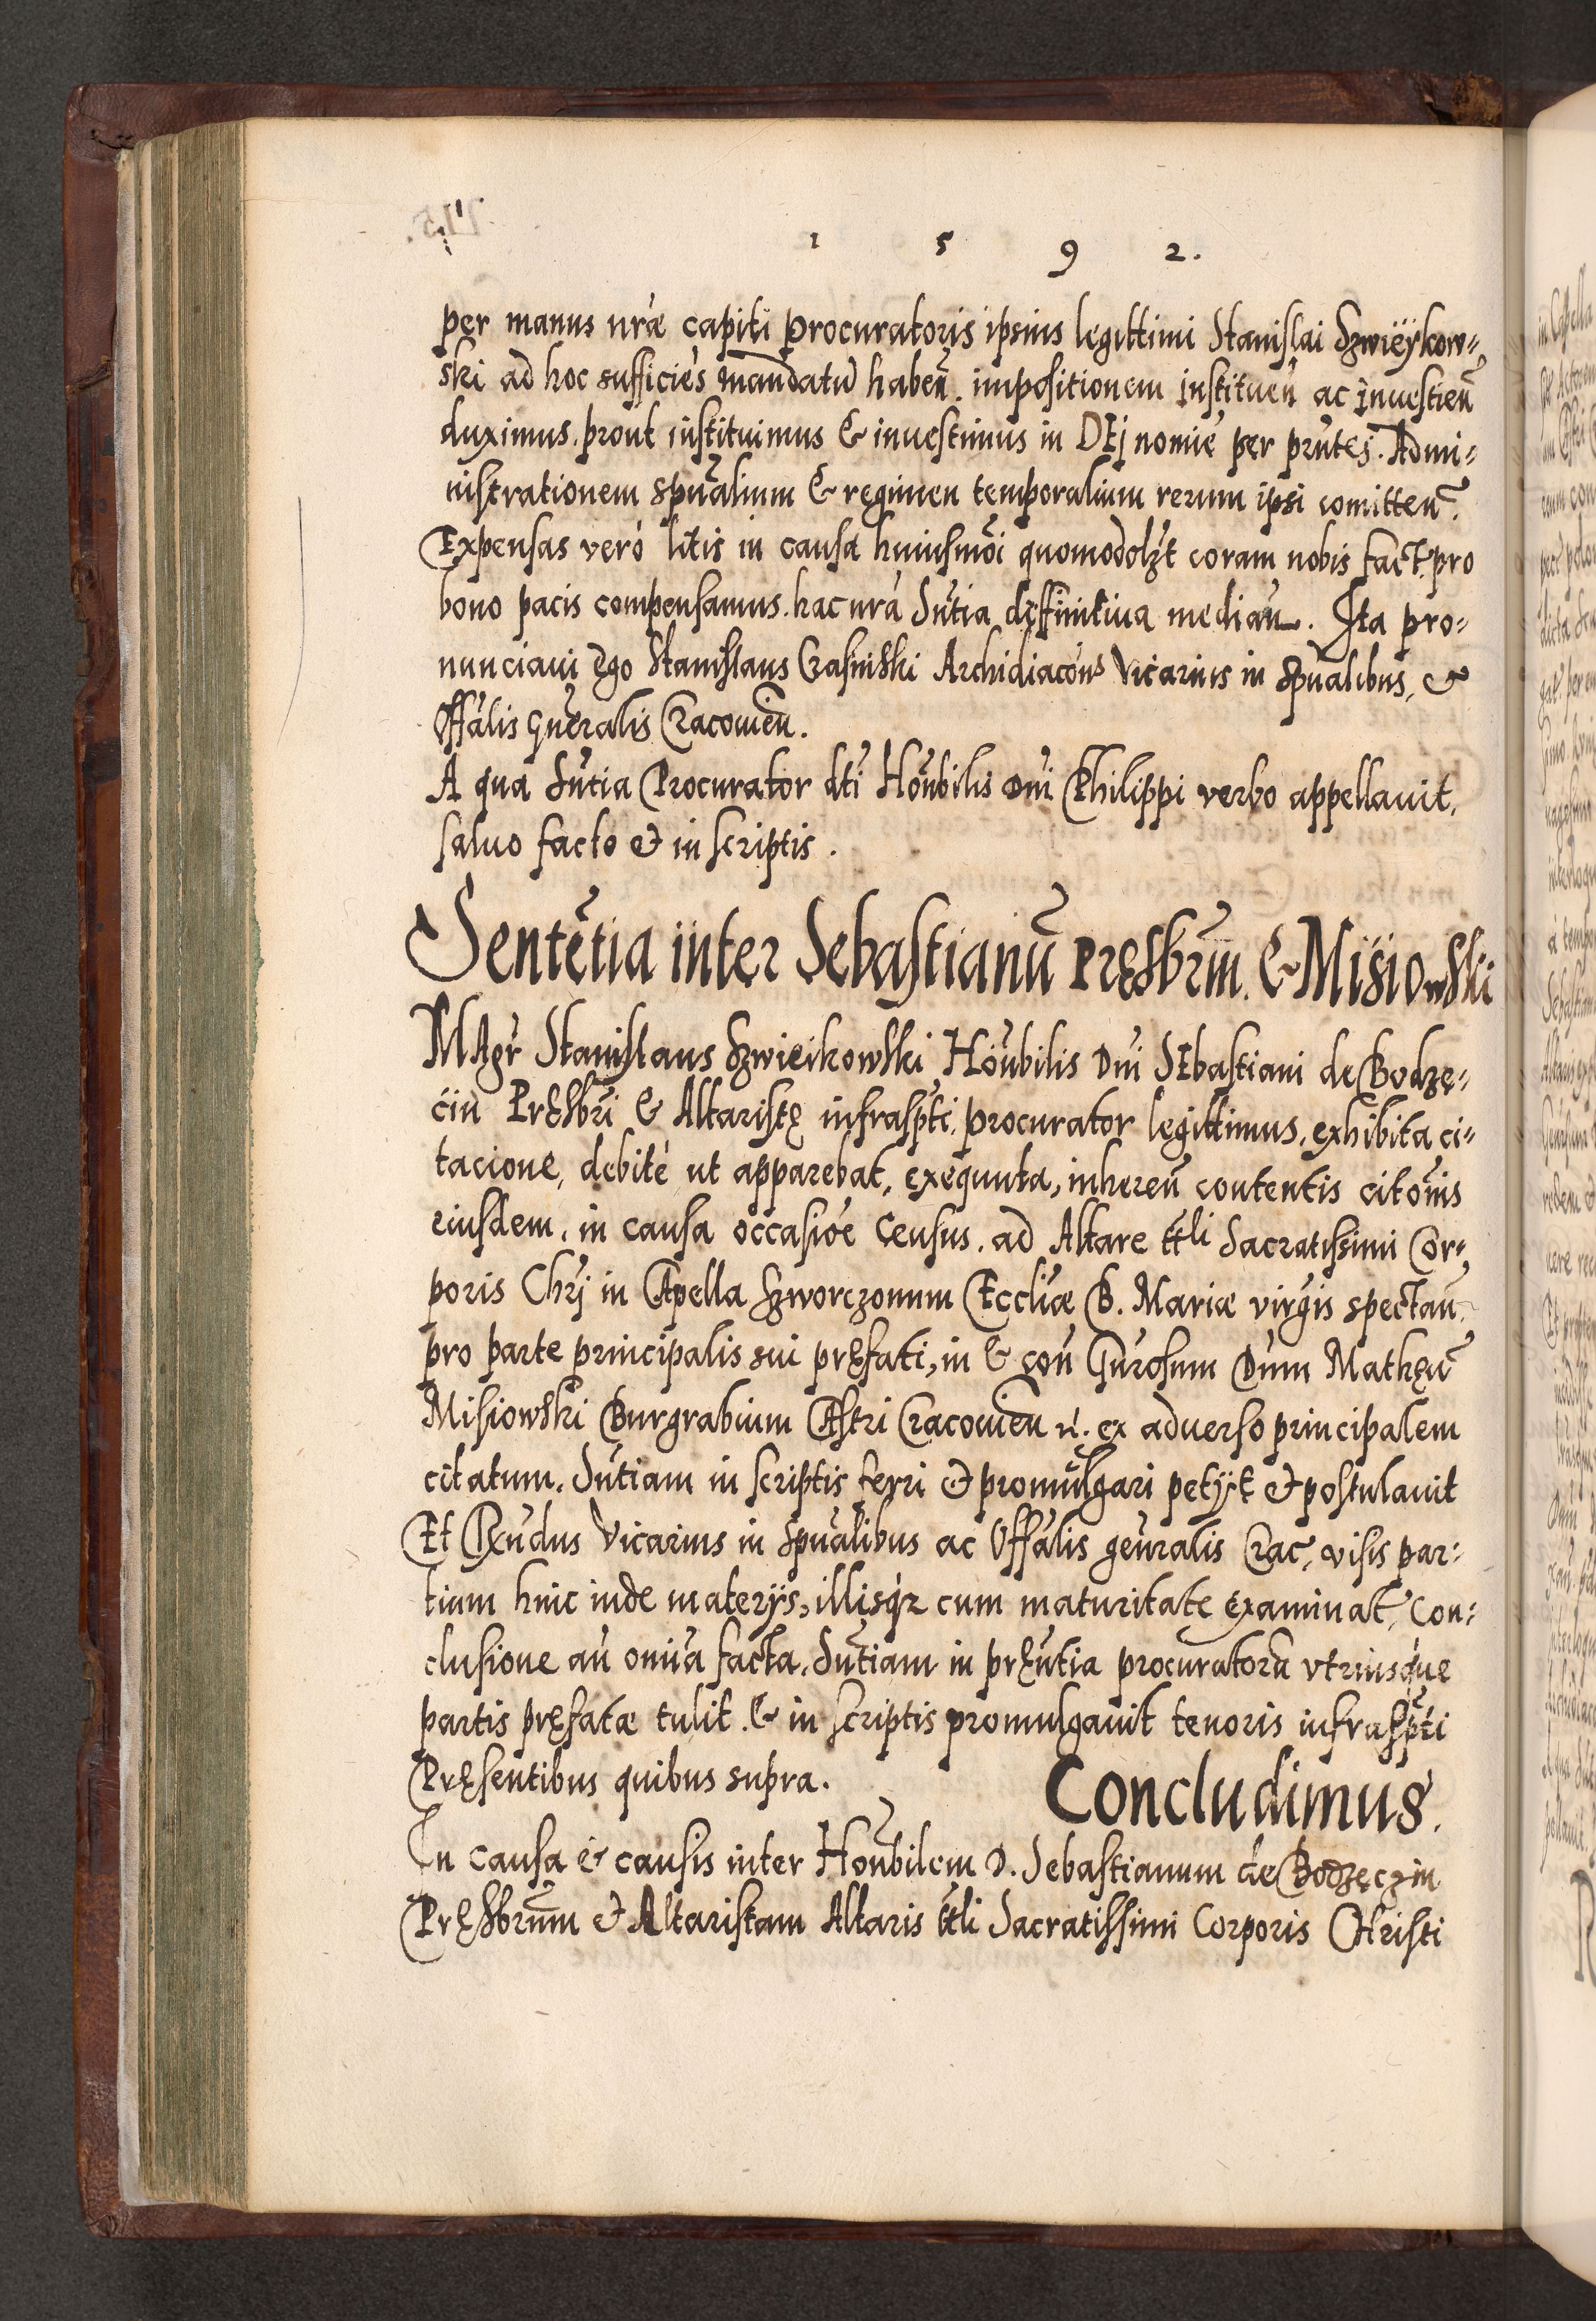 1 5 9 2.
per manus nræ capiti procuratoris ipsius legittimi Stanislai Szwieÿkow=
ski ad hoc sufficiẽs mandatũ habeñ. impositionem instituen̄ ac inuestien̄
duximus. prout instituimus & inuestimus in DEj nomīe per pñtes. Admi=
nistrationem spũalium & regimen temporalium rerum ipsi comitten̄.
Expensas verò litis in causa huiusmõi quomodolzt coram nobis fact. pro
bono pacis compensamus. hac nrã Sñtia deffinitiua median̄. Ita pro=
nunciaui ego Stanislaus Crasinski Archidiacõns Vicarius in Spũalibus, et
Offãlis gñeralis Cracouieñ.
A qua Sñtia Procurator dti Hoñbilis Dni Philippi verbo appellauit,
saluo facto et in scriptis.
Sentẽtia inter Sebastianũ Pręsbrm̃. & Misiowski
MAgr Stanislaus Szwieikowski Hoñbilis Dni SEbastiani de Bodzę=
cin Pręsbri & Altaristę infraspti. procurator legittimus, exhibita ci=
tacione, debitè ut apparebat, exequuta, inheren̄ contentis citõnis
eiusdem. in causa occasiõe Census. ad Altare ttli Sacratissimi Cor=
poris Chrj in CApella Szworczonum Ecclĩæ B. Mariæ virgĩs spectan̄.
pro parte principalis sui pręfati, in & con̄ Gñrosum Dnm Mathęũ
Misiowski Burgrabium CAstri Cracouieñ rl. ex aduerso principalem
citatum. Sñtiam in scriptis ferri et promulgari petÿt et postulauit
Et Rxñdus Vicarius in Spũalibus ac Offãlis geñralis Crac, visis par=
tium hinc inde materÿs, illisqz cum maturitate examinat. Con=
clusione an̄ omĩa facta. Sñtiam in pręñtia procuratorũ vtriusque
partis pręfatæ tulit. & in scriptis promulgauit tenoris infraspti
Pręsentibus quibus supra.
Concludimus.
In causa et causis inter Hoñbilem D. Sebastianum de Bodzęczin
Pręsbrũm et Altaristam Altaris ttli Sacratissimi Corporis CHristi